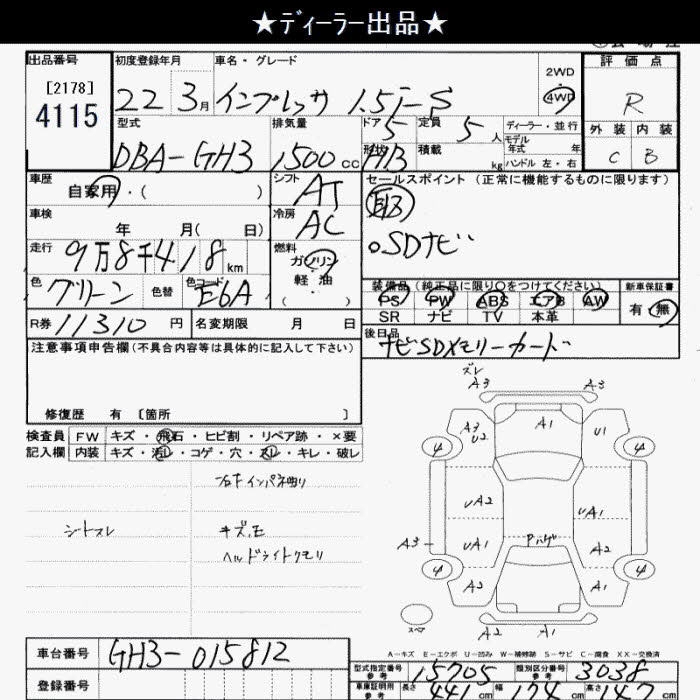 ★ディーラー出品★
出品番号 初度登録年月 車名・グレード 評価点
[2178] 4115 22 3月 インプレッサ 1.5i-S 2WD 4WD R
型式 排気量 ドア 5 定員 5人 ディーラー・並行 外装 内装
モデル年式 年
DBA-GH3 1500cc 形状 HB 積載 kg ハンドル 左・右 C B
車歴 自家用・( ) シフト AT セールスポイント (正常に機能するものに限ります)
車検 年 月( 日) 冷房 AC
走行 9万8千418km 燃料 ガソリン 軽油 ( ) ○SDナビ
色 グリーン 色替 色コード E6A 装備品 (純正品に限り○をつけてください) 新車保証書
PS PW ABS エアB AW 有・無
SR ナビ TV 本革
R券 11310円 名変期限 月 日 後日品
ナビSDメモリーカード
注意事項申告欄(不具合内容等は具体的に記入して下さい)
修復歴 有 〔箇所 〕
検査員 FW キズ・飛石・ヒビ割・リペア跡・×要
記入欄 内装 キズ・汚レ・コゲ・穴・スレ・キレ・破レ
シートスレ
キズ、凹
ヘッドライトクモリ
ズレ
A3 A3
A3 U2 A1 U1
4 4
UA2 UA1
A3 UA1 Pハゲ A2
4 4
A2 A1
スペア A2 A1
A-キズ E-エクボ U-凹み W-補修跡 S-サビ C-腐食 XX-交換済
車台番号 GH3-015812
型式指定番号 参考 15705 類別区分番号 参考 3038
登録番号
車庫証明用 参考 長さ 441cm 幅 174cm 高さ 147cm